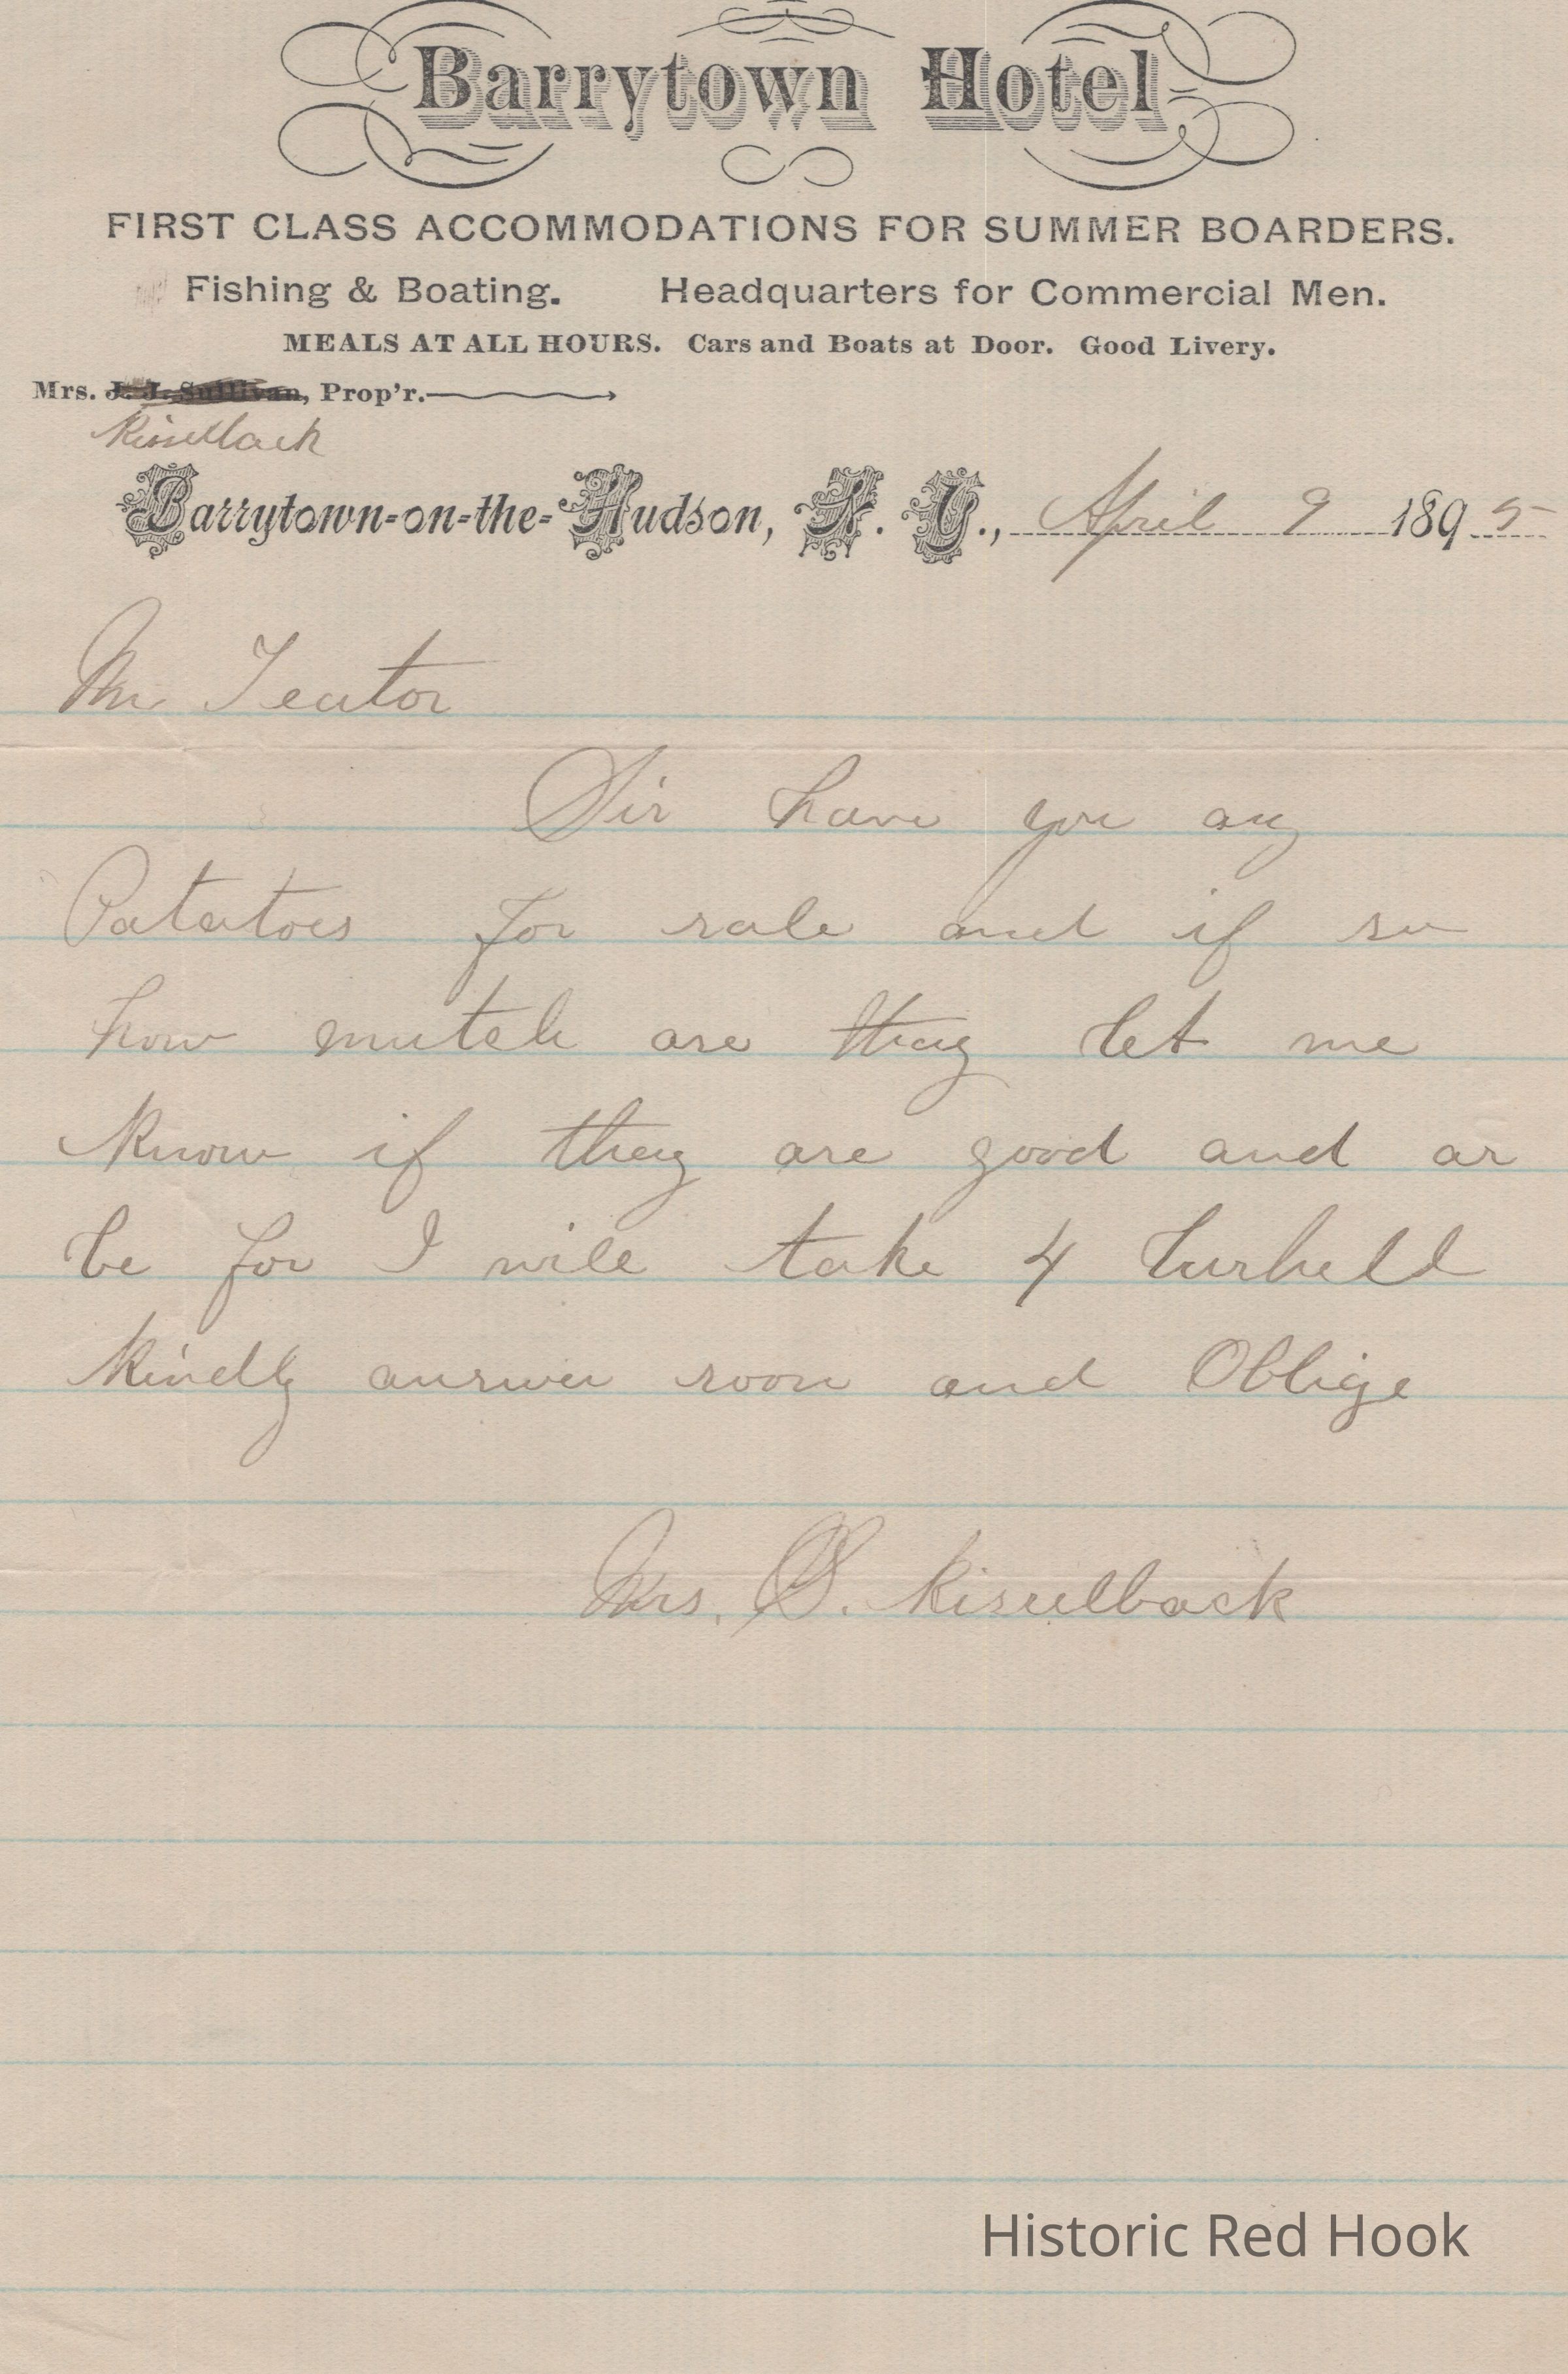 Barrytown Hotel
FIRST CLASS ACCOMMODATIONS FOR SUMMER BOARDERS.
Fishing & Boating. Headquarters for Commercial Men.
MEALS AT ALL HOURS. Cars and Boats at Door. Good Livery.
Mrs. J. J. Sullivan, Prop'r.
Kisselback
Barrytown-on-the-Hudson, N. Y., April 9 1895
Mr Teator
Sir have you any
Patatoes for sale and if so
how mutch are thay let me
know if thay are good and ar
be for I will take 4 burhell
kindly answer soon and Oblige
Mrs. G. Kisselback
Historic Red Hook